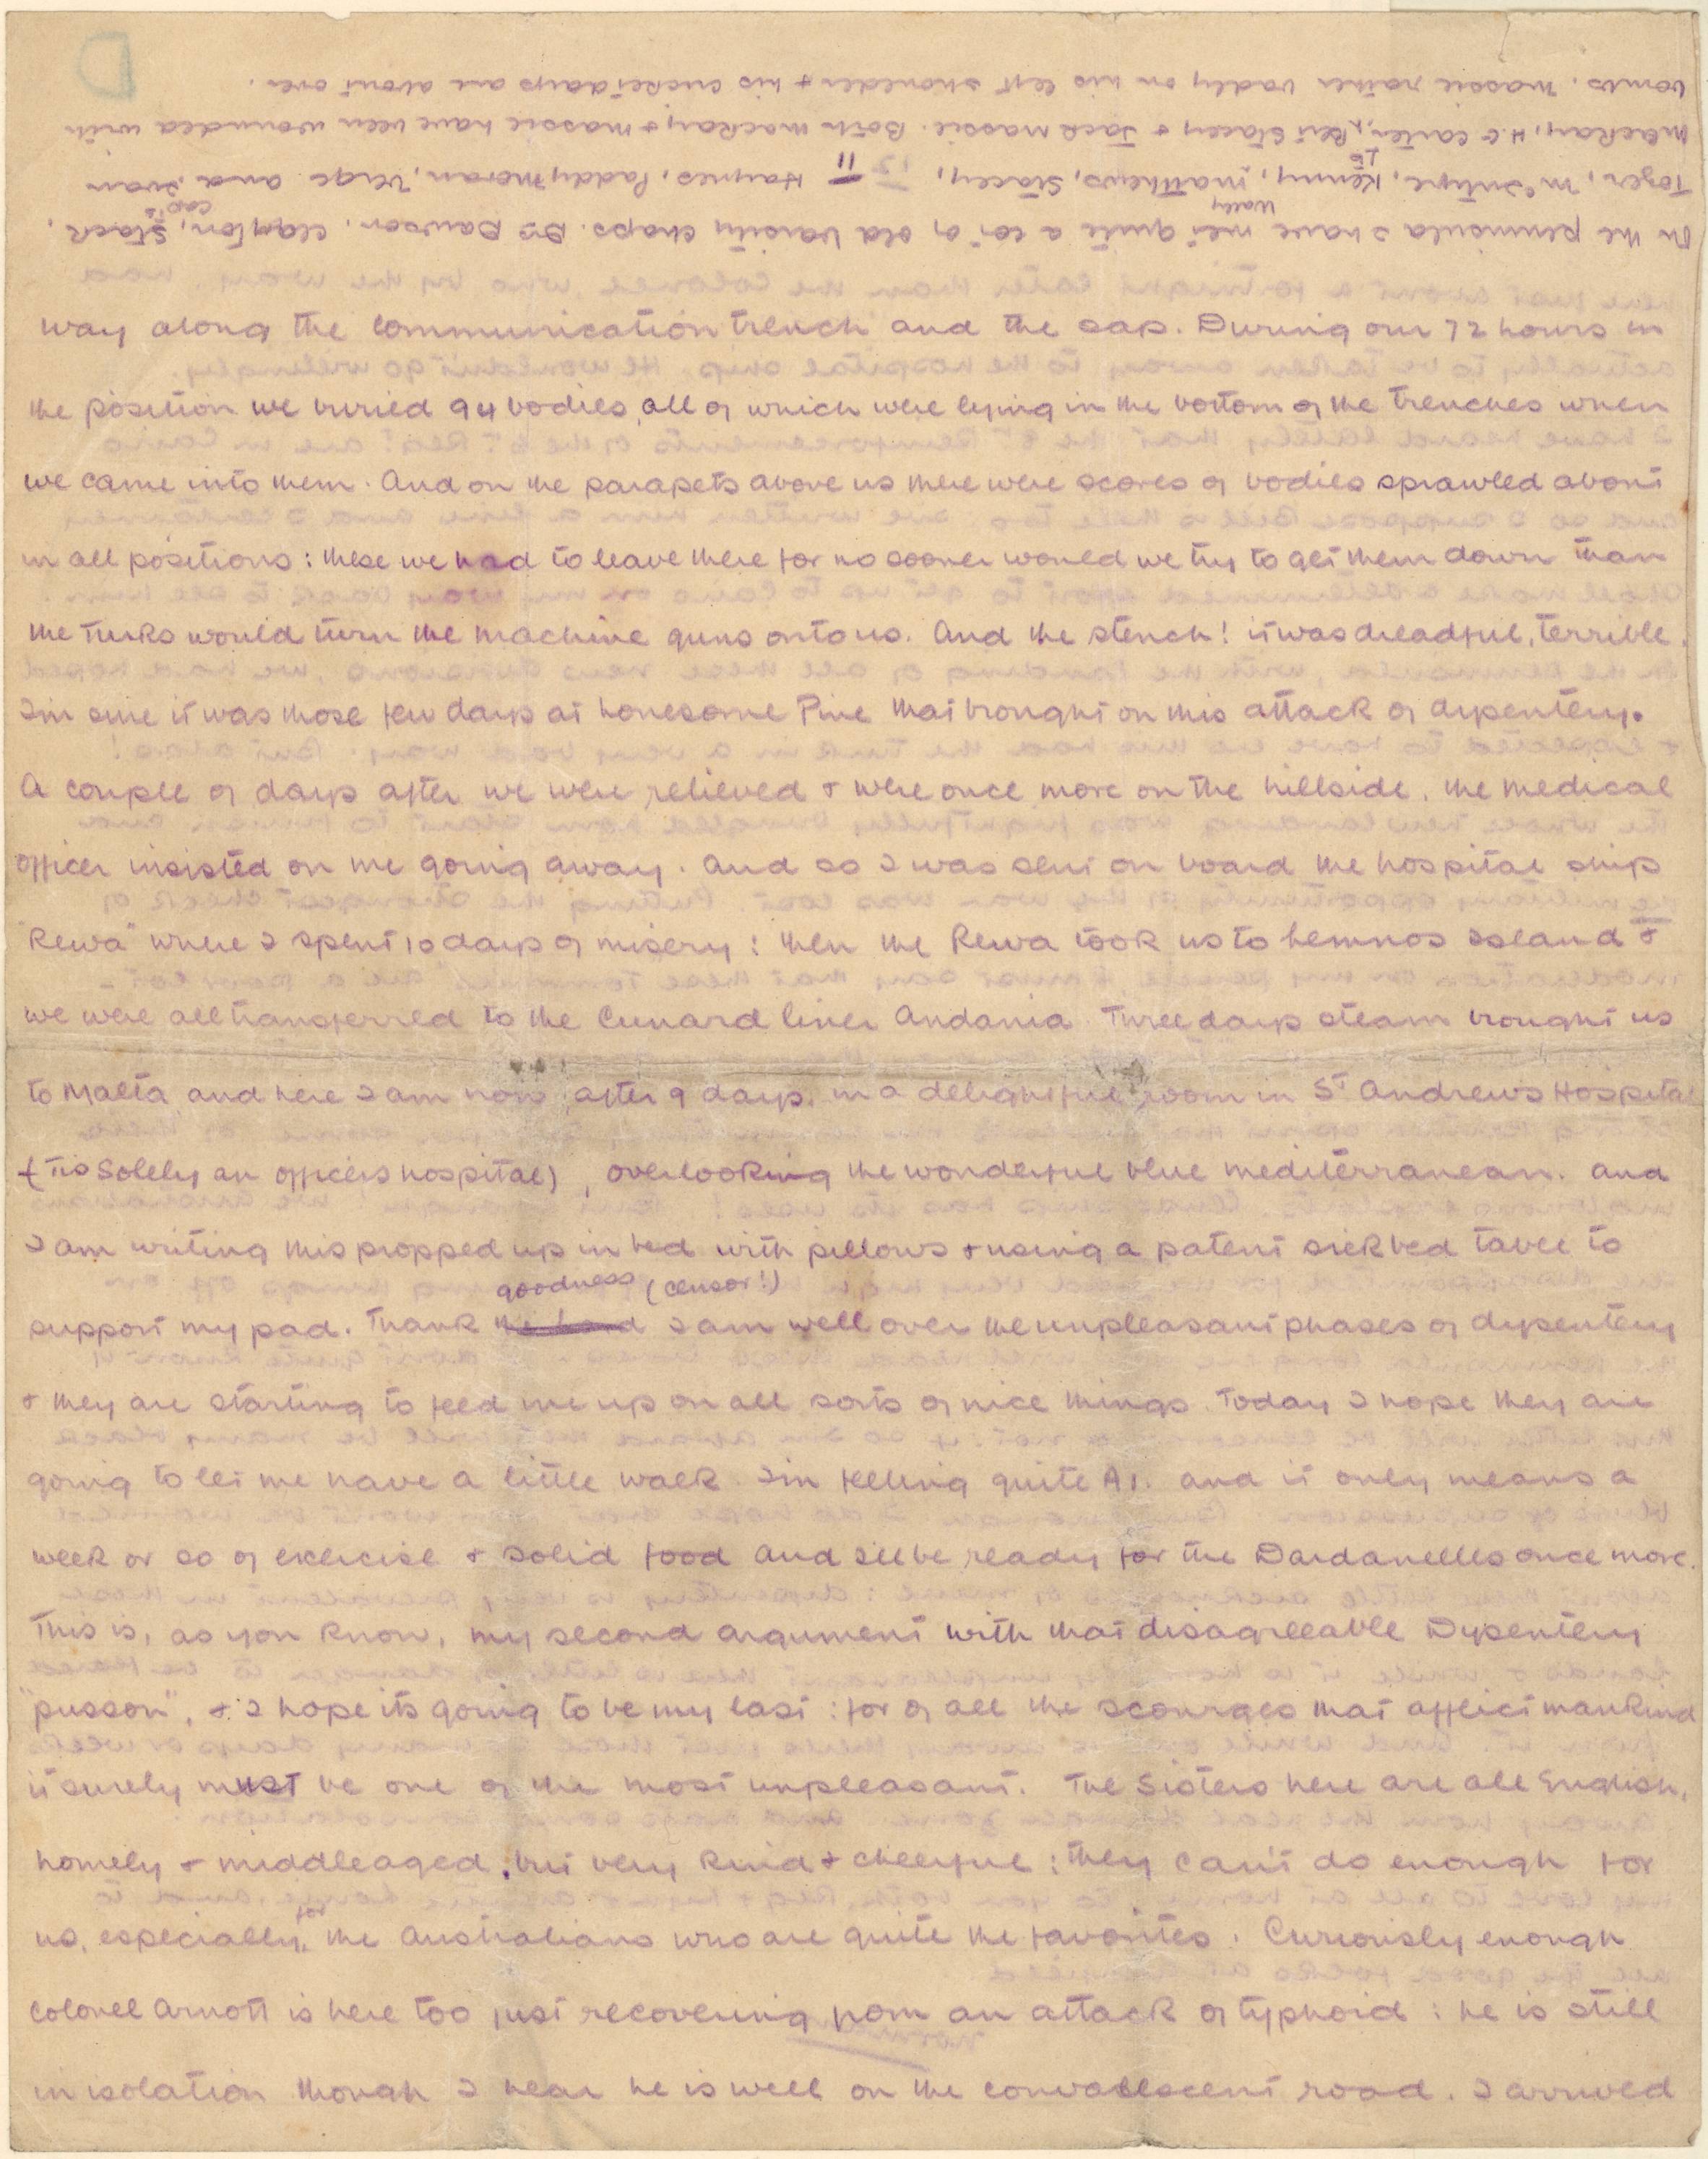 D
way along the communication trench and the sap. During our 72 hours in
the position we buried 94 bodies, all of which were lying in the bottom of the trenches when
we came into them. And on the parapets above us there were scores of bodies sprawled about
in all positions: these we had to leave there for no sooner would we try to get them down than
the Turks would turn the machine guns onto us. And the stench! it was dreadful, terrible.
I'm sure it was those few days at Lonesome Pine that brought on this attack of dysentery.
A couple of days after we were relieved & were once more on the hillside, the medical
officer insisted on me going away. And so I was sent on board the hospital ship
"Rewa" where I spent 10 days of misery: then the Rewa took us to Lemnos Island &
we were all transferred to the Cunard liner Andania. Three days steam brought us
to Malta and here I am now, after 9 days, in a delightful room in St Andrews Hospital
(tis solely an officers hospital), overlooking the wonderful blue mediterranean. And
I am writing this propped up in bed with pillows & using a patent sickbed table to
goodness (censor!)
support my pad. Thank the Lord I am well over the unpleasant phases of dysentery
& they are starting to feed me up on all sorts of nice things. Today I hope they are
going to let me have a little walk. I'm feeling quite A1. and it only means a
week or so of exercise & solid food and I'll be ready for the Dardanelles once more.
This is, as you know, my second argument with that disagreeable Dysentery
"pusson", & I hope its going to be my last: for of all the scourges that afflict mankind
it surely must be one of the most unpleasant. The Sisters here are all English,
homely & middleaged, but very kind & cheerful: they can't do enough for
us, especially for the Australians who are quite the favorites. Curiously enough
Colonel Arnott is here too just recovering from an attack of typhoid: he is still
in isolation though I hear he is well on the convalescent road. I arrived
On the peninsula I have met quite a lot of old Varsity chaps. Drs Dawson, Clayton, Capt Stack,
Tozer, McIntyre, Lt Kenny, Wally Matthews, Stacey, 11 Haynes, Paddy Moran, Verge and Ivan
MacKay, H.G. Carter, Stacey & Jack Massie. Both MacKay & Massie have been wounded with
bombs. Massie rather badly on his left shoulder & his cricket days are about over.